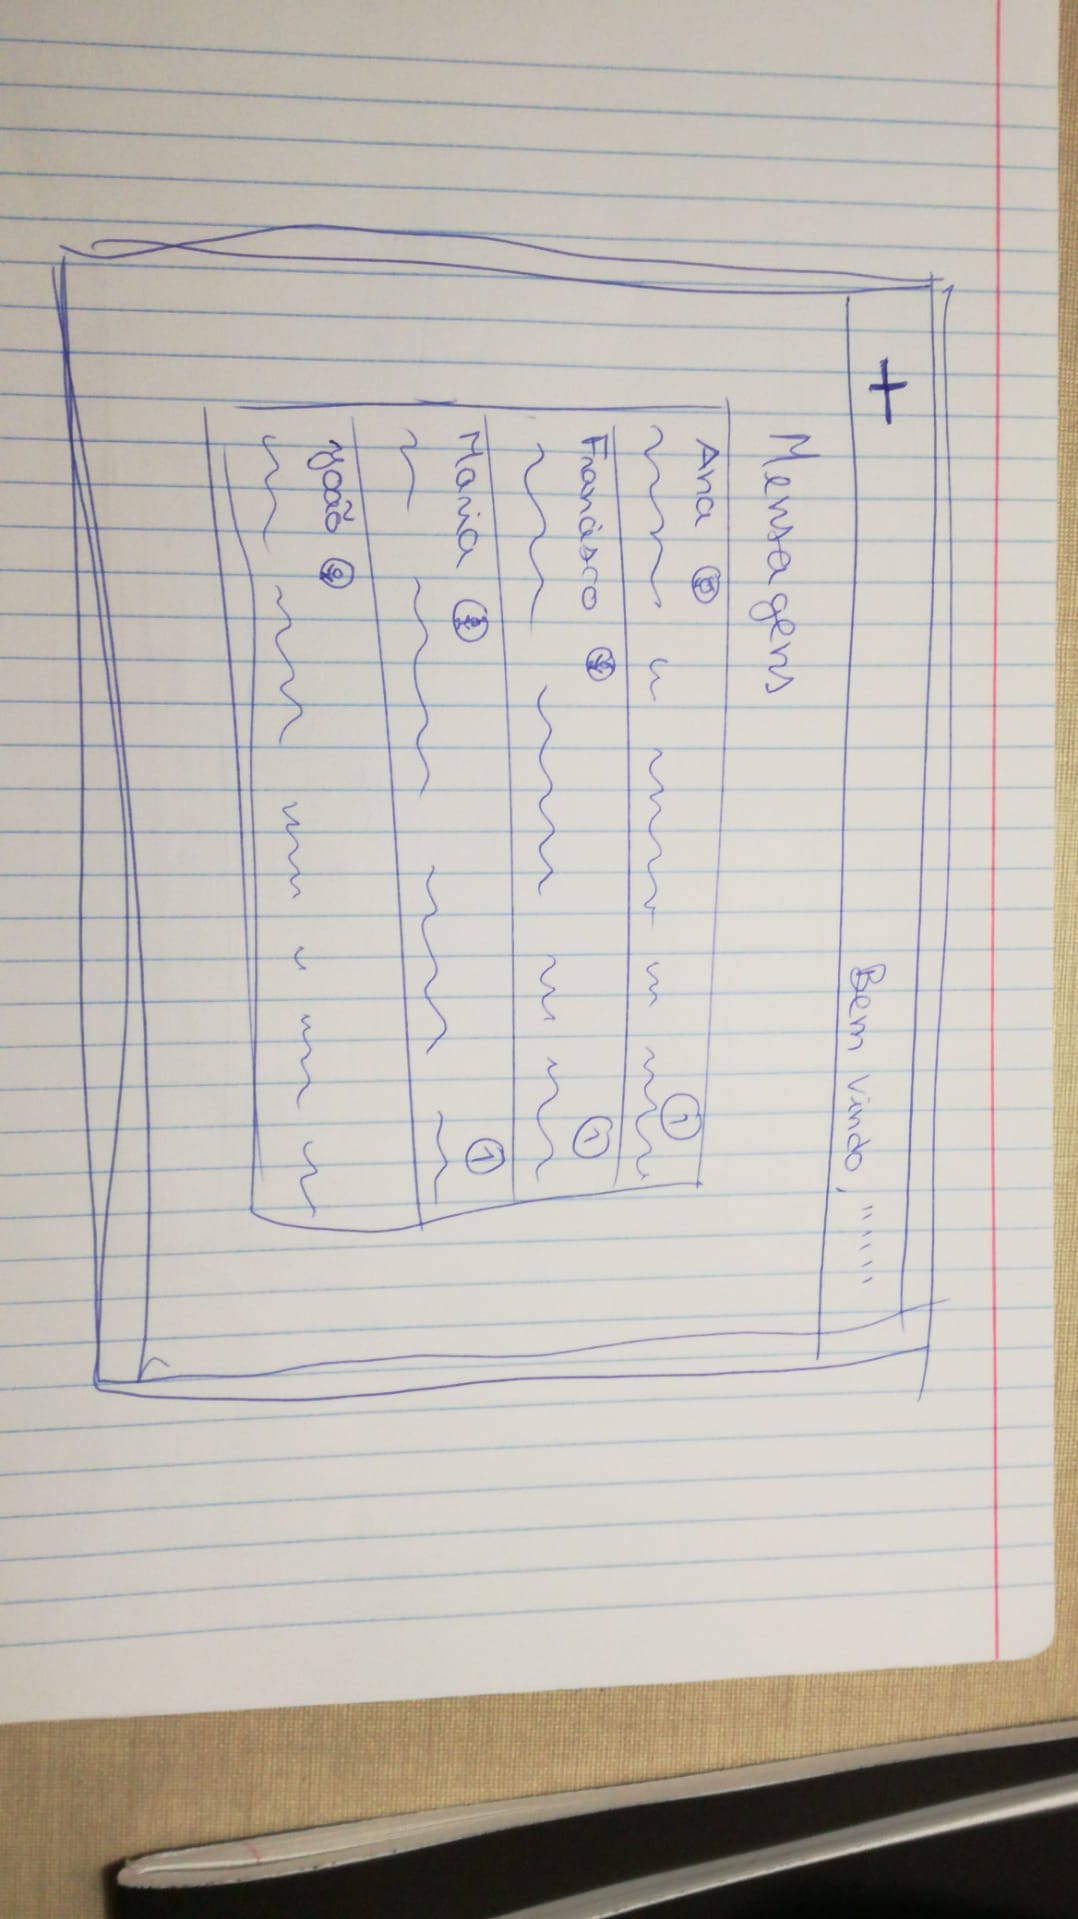 +
Bem vindo, """
Mensagens
Ana 1
Francisco 1
Maria 1
João